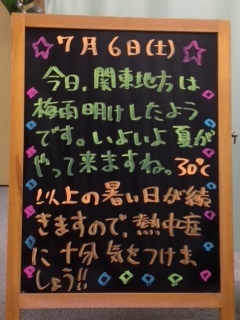 7月6日(土)
今日、関東地方は
梅雨明けしたよう
です。いよいよ夏が
やって来ますね。30℃
以上の暑い日が続
きますので、熱中症
に十分気をつけま
しょう!!